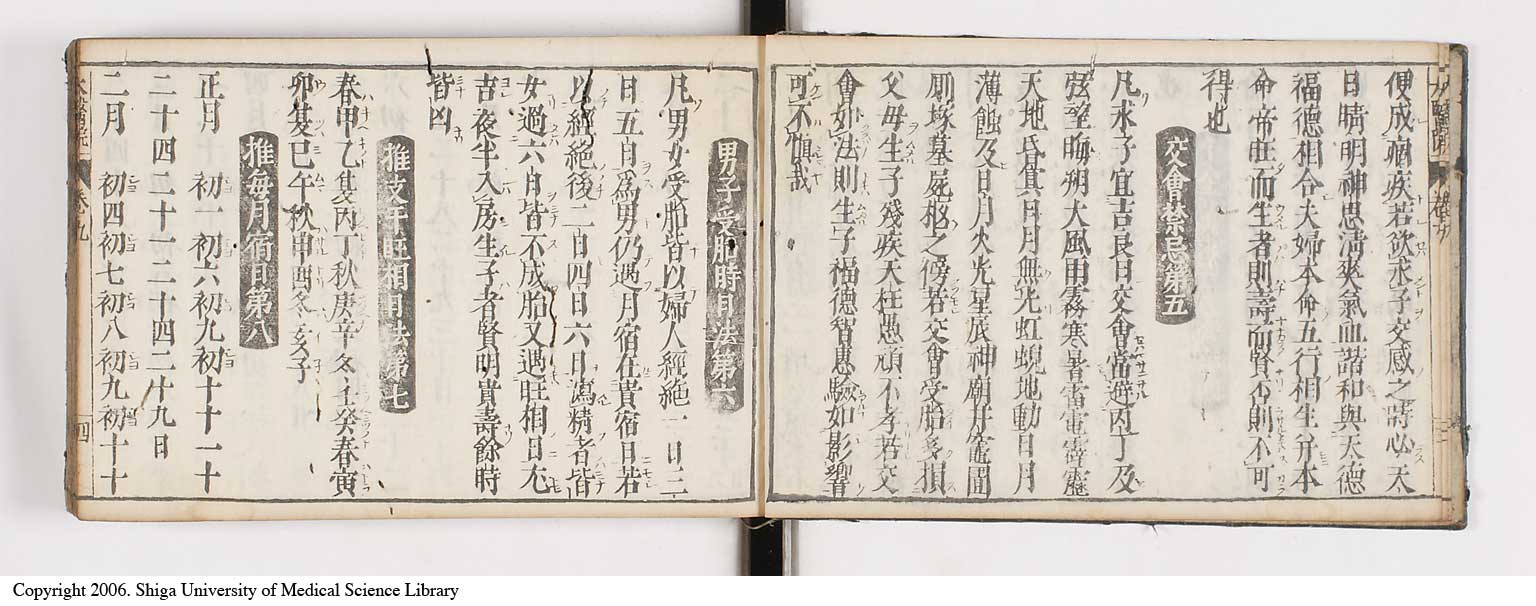 便成痼疾若欲求子交感之時必天
日晴明神思清爽氣血諧和與天德
福德相合夫婦本命五行相生分本
命帝旺而生者則壽而賢否則不可
得也
交會禁忌第五
凡求子宜吉良日交會當避丙丁及
弦望晦朔大風雨霧寒暑雷電霹靂
天地昏冥日月無光虹蜺地動日月
薄蝕及日月火光星辰神廟井竈圊
厠塚墓屍柩之傍若交會受胎多損
父母生子殘疾夭枉愚頑不孝若交
會如法則生子福德智惠驗如影響
可不慎哉
男子受胎時日法第六
凡男女受胎皆以婦人經絶一日三
日五日爲男仍遇月宿在貴宿日若
以經絶後二日四日六日瀉精者皆
女過六日皆不成胎又遇旺相日尤
吉夜半入房生子者賢明貴壽餘時
皆凶
推支干旺相日法第七
春甲乙夏丙丁秋庚辛冬壬癸春寅
卯夏巳午秋申酉冬亥子
推每月宿日第八
正月 初一初六初九初十十一十
二十四二十一二十四二十九日
二月 初四初七初八初九初十十
卷九
四
Copyright 2006. Shiga University of Medical Science Library